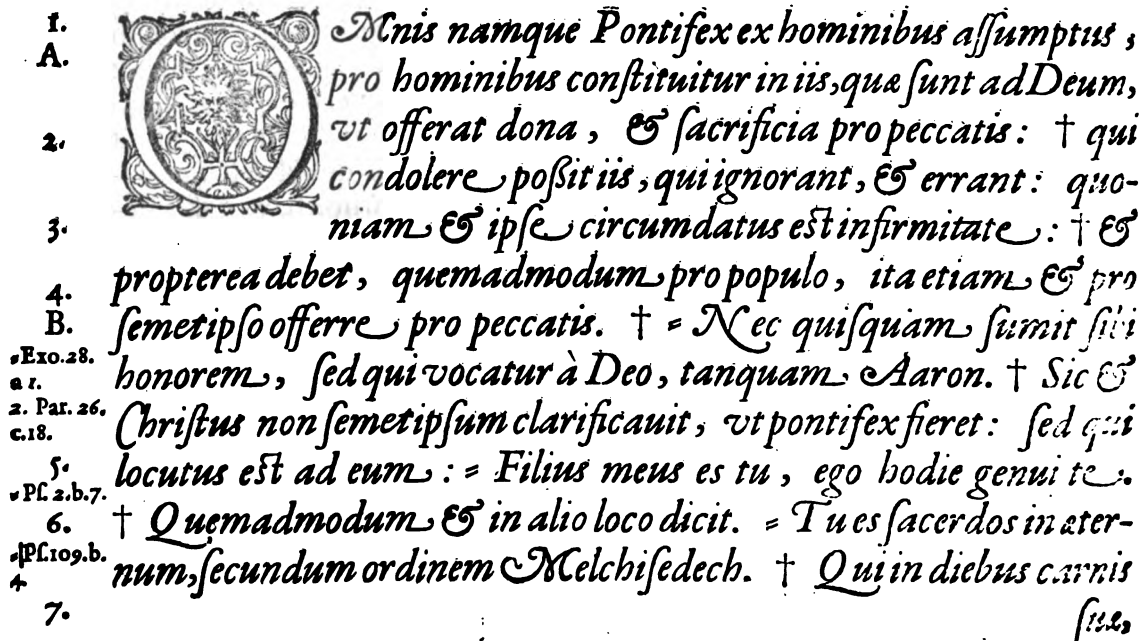 1. OMnis namque Pontifex ex hominibus aſſumptus,
A. pro hominibus conſtituitur in iis, quæ ſunt ad Deum,
2. vt offerat dona, & ſacrificia pro peccatis: † qui
condolere poßit iis, qui ignorant, & errant: quo-
3. niam & ipſe circumdatus eſt infirmitate: † &
4. propterea debet, quemadmodum pro populo, ita etiam & pro
B. ſemetipſo offerre pro peccatis. † = Nec quiſquam ſumit ſibi
=Exo.28.
a 1. honorem, ſed qui vocatur à Deo, tanquam Aaron. † Sic &
2. Par. 26.
c.18. Chriſtus non ſemetipſum clarificauit, vt pontifex fieret: ſed qui
5. locutus eſt ad eum: = Filius meus es tu, ego hodie genui te.
=Pſ. 2.b.7.
6. † Quemadmodum & in alio loco dicit. = Tu es ſacerdos in æter-
=Pſ.109.b.
4 num, ſecundum ordinem Melchiſedech. † Qui in diebus carnis
7. ſuæ,